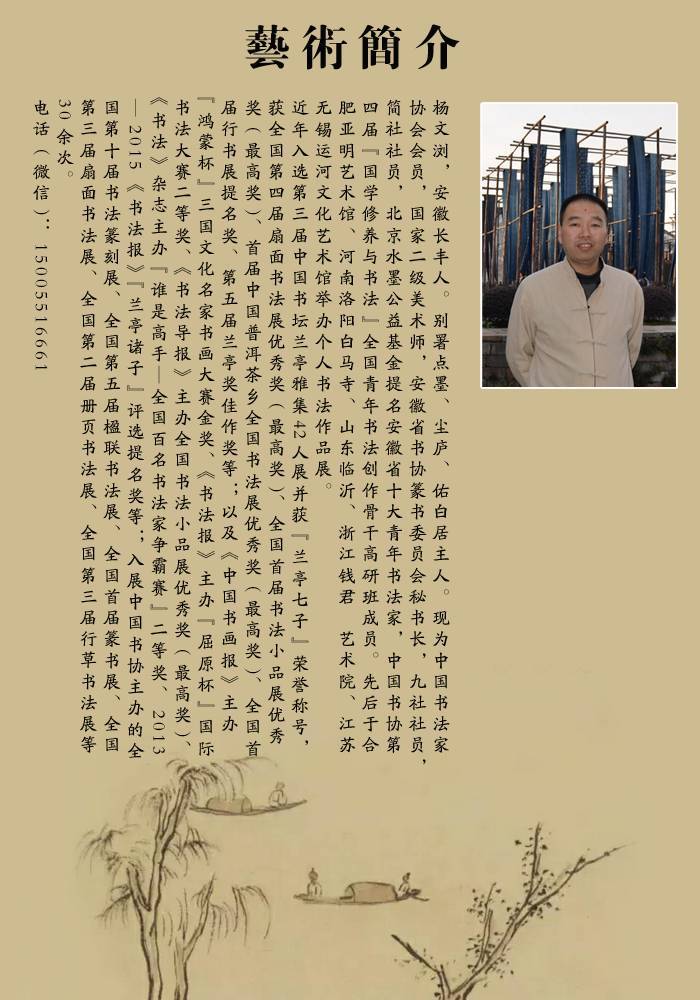 藝術簡介
杨文浏，安徽长丰人。别署点墨、尘庐、佑白居主人。现为中国书法家
协会会员，国家二级美术师，安徽省书协篆书委员会秘书长，九社社员，
简社社员，北京水墨公益基金提名安徽省十大青年书法家，中国书协第
四届『国学修养与书法』全国青年书法创作骨干高研班成员。先后于合
肥亚明艺术馆、河南洛阳白马寺、山东临沂、浙江钱君　艺术院、江苏
无锡运河文化艺术馆举办个人书法作品展。
近年入选第三届中国书坛兰亭雅集42人展并获『兰亭七子』荣誉称号，
获全国第四届扇面书法展优秀奖（最高奖）、全国首届书法小品展优秀
奖（最高奖）、首届中国普洱茶乡全国书法展优秀奖（最高奖）、全国首
届行书展提名奖、第五届兰亭奖佳作奖等；以及《中国书画报》主办
『鸿蒙杯』三国文化名家书画大赛金奖、《书法报》主办『屈原杯』国际
书法大赛二等奖、《书法导报》主办全国书法小品展优秀奖（最高奖）、
《书法》杂志主办『谁是高手—全国百名书法家争霸赛』二等奖、2013
—2015《书法报》『兰亭诸子』评选提名奖等；入展中国书协主办的全
国第十届书法篆刻展、全国第五届楹联书法展、全国首届篆书展、全国
第三届扇面书法展、全国第二届册页书法展、全国第三届行草书法展等
30余次。
电话（微信）：15005516661